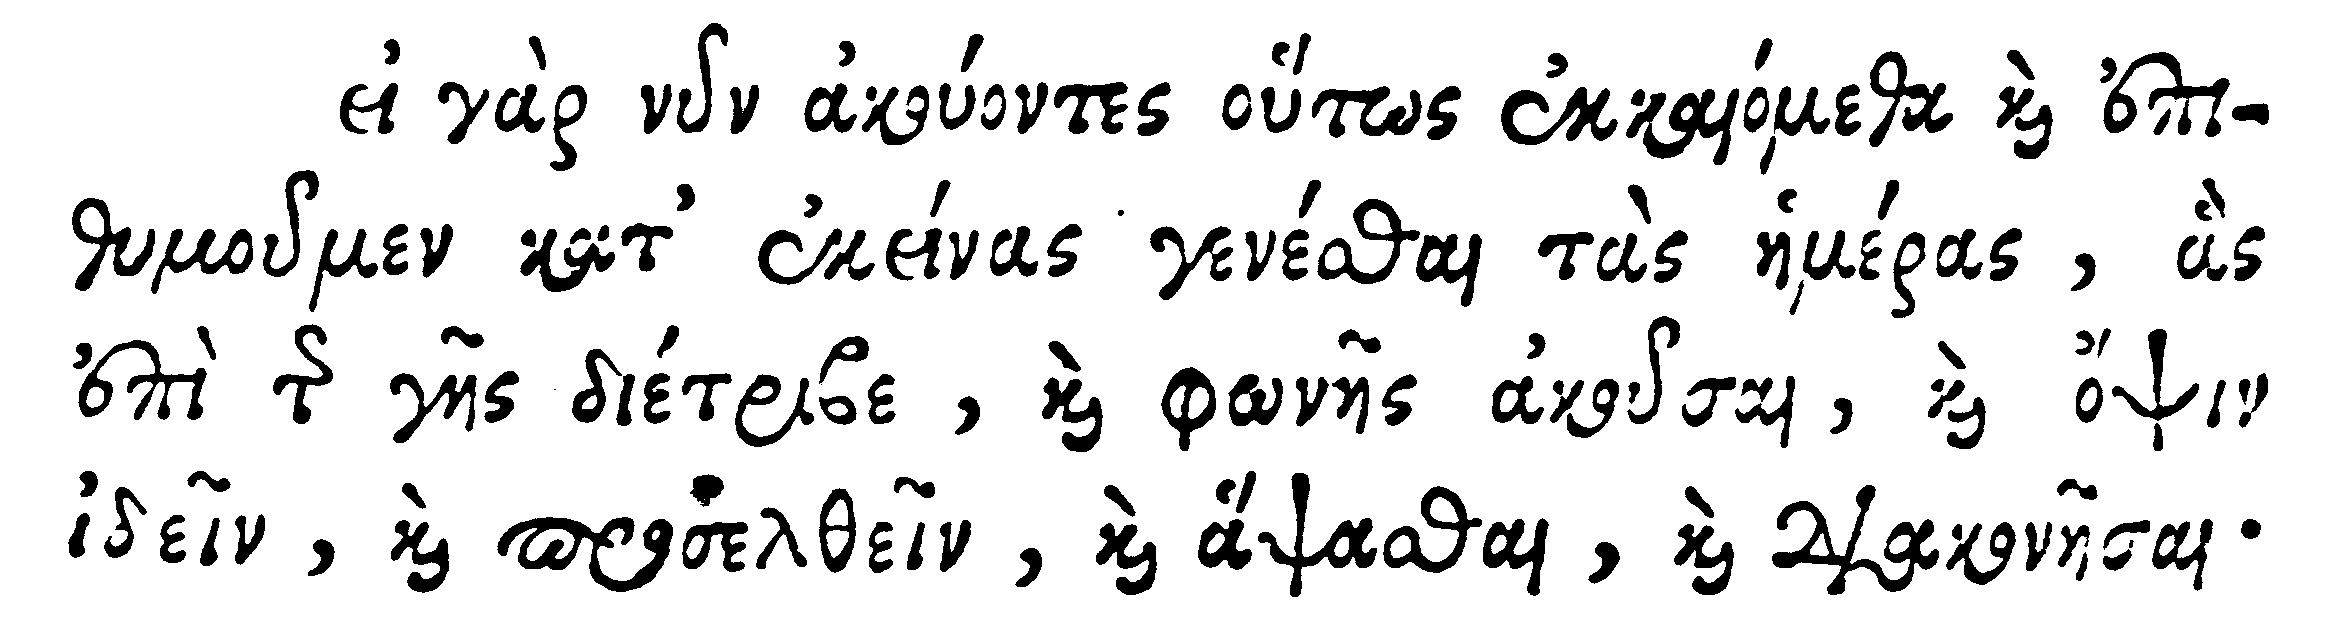 εἰ γὰρ νῦν ἀκούοντες οὕτως ἐκκαιόμεθα καὶ ἐπι-
θυμοῦμεν κατ’ ἐκείνας γενέσθαι τὰς ἡμέρας, ἃς
ἐπὶ τῆς γῆς διέτριβε, καὶ φωνῆς ἀκοῦσαι, καὶ ὄψιν
ἰδεῖν, καὶ προσελθεῖν, καὶ ἅψασθαι, καὶ διακονῆσαι·